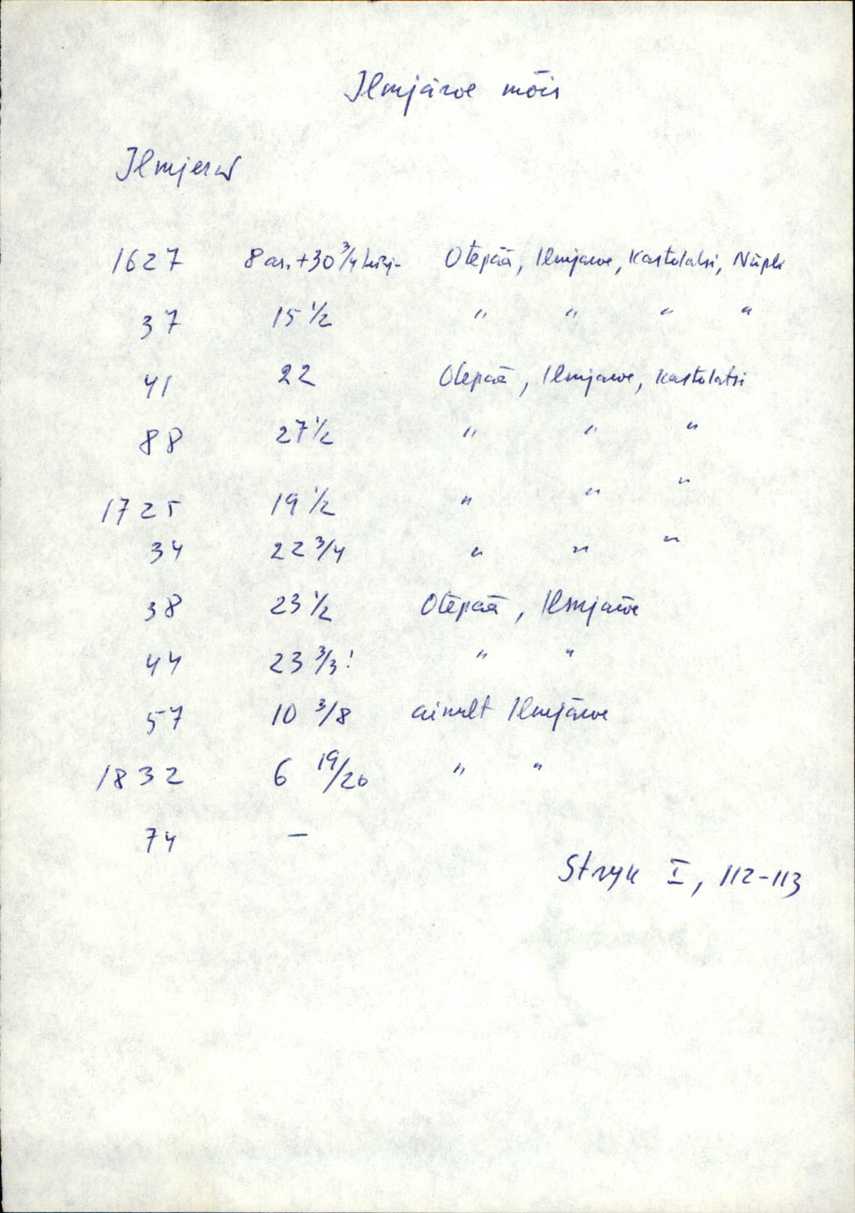 Ilmjärve mõis
Ilmjerw
1627 8 as. + 30 3/4 Otepää, Ilmjärve, Kastolatsi, Nüpli
37 15 1/2 " " " "
41 22 Otepää, Ilmjärve, Kastolatsi
88 27 1/2 " " "
1725 19 1/2 " " "
34 22 3/4 " " "
38 23 1/2 Otepää, Ilmjärve
44 23 3/3! " "
57 10 3/8 ainult Ilmjärve
1832 6 19/20 " "
74 –
Stryk I, 112-113